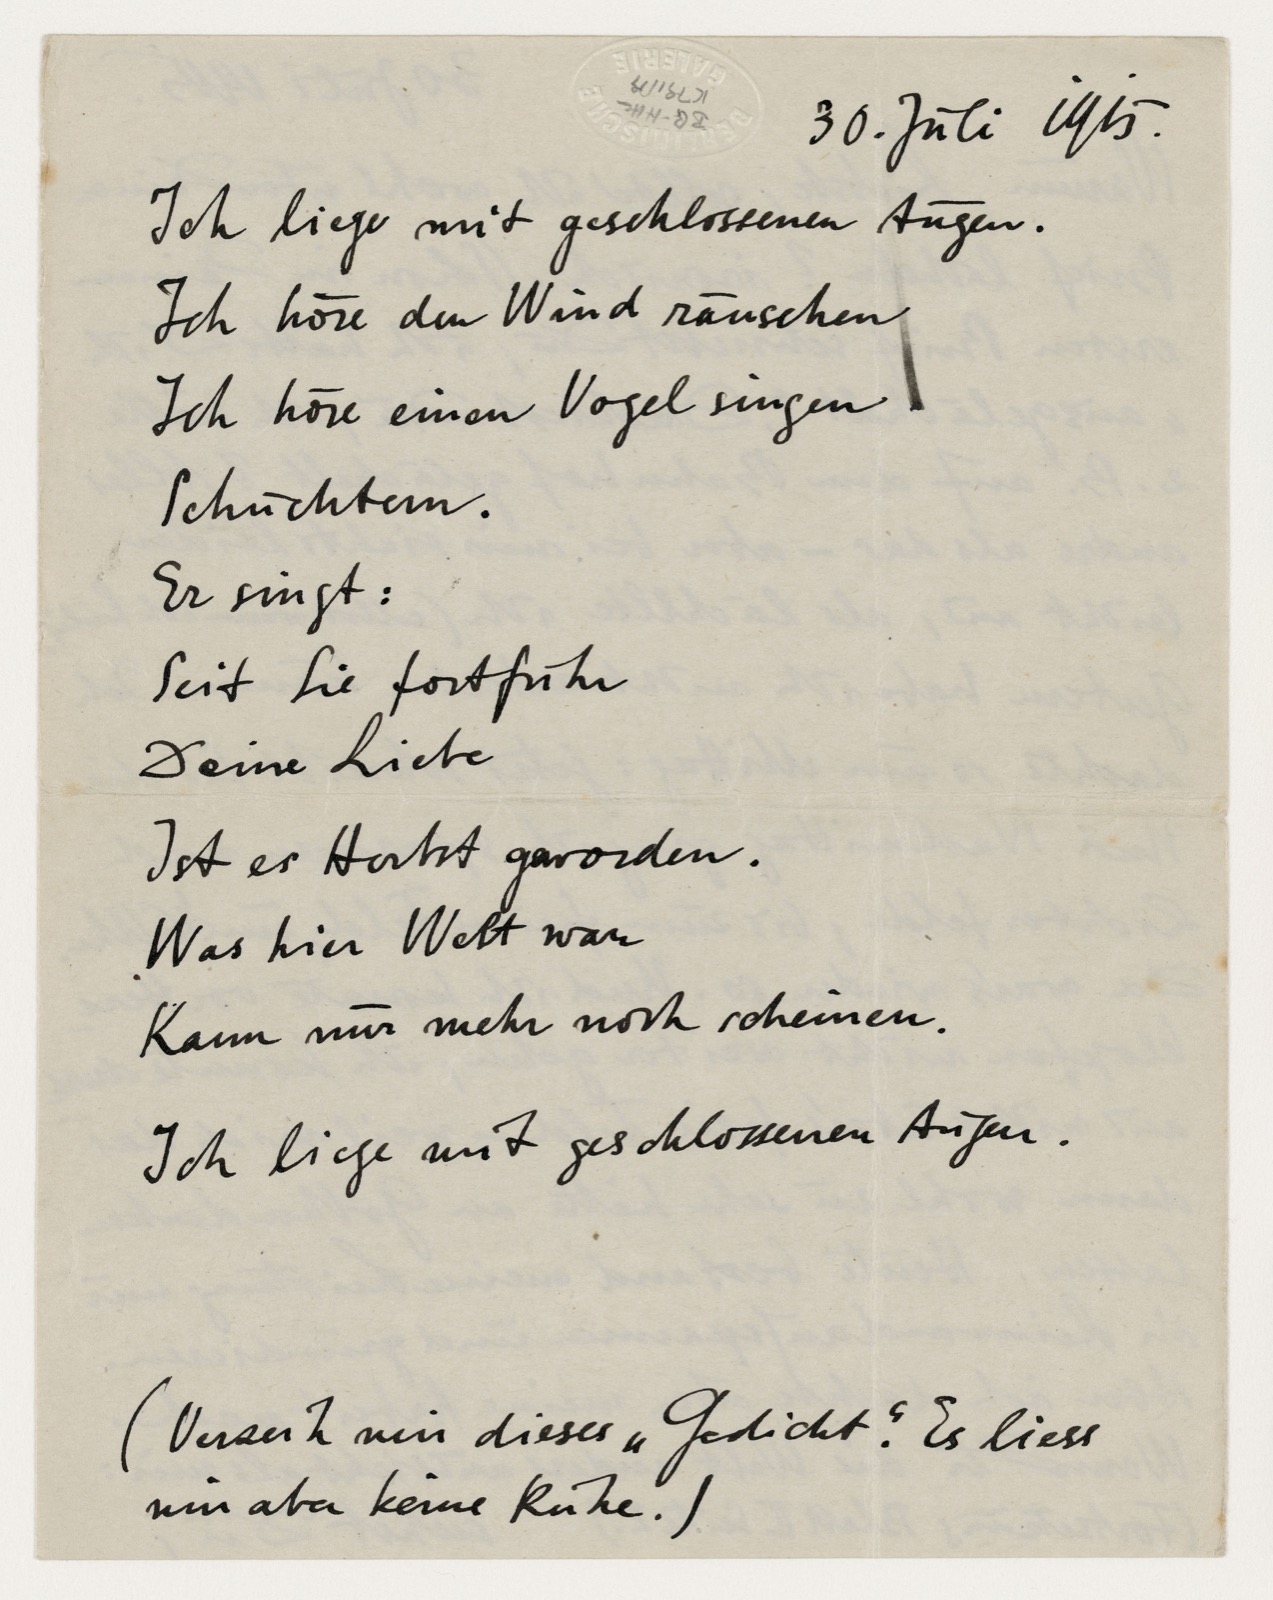 BERLINISCHE GALERIE
BG-HHC
K 79/79
30. Juli 1915.
Ich liege mit geschlossenen Augen.
Ich höre den Wind rauschen
Ich höre einen Vogel singen
Schüchtern.
Er singt:
Seit Sie fortfuhr
Deine Liebe
Ist es Herbst geworden.
Was hier Welt war
Kann nur mehr noch scheinen.
Ich liege mit geschlossenen Augen.
(Verzeih mir dieses „Gedicht“. Es liess
mir aber keine Ruhe.)